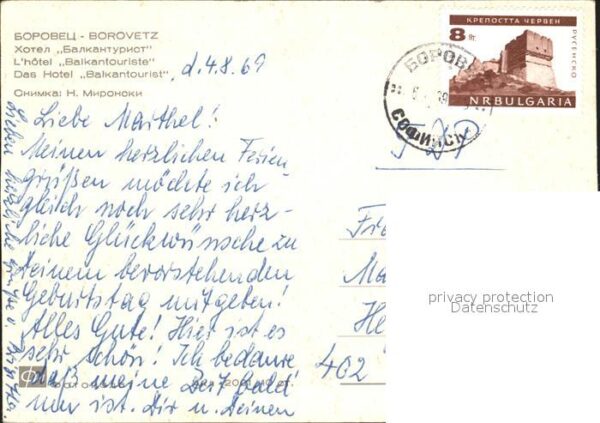 БОРОВЕЦ - BOROVETZ
Хотел „Балкантурист"
L'hôtel „Balkantouriste"
Das Hotel „Balkantourist"
Снимка: Н. Миронски
d. 4.8.69
Liebe Marthel!
Meinen herzlichen Ferien-
grüßen möchte ich
gleich noch sehr herz-
liche Glückwünsche zu
Deinem bevorstehenden
Geburtstag mitgeben!
Alles Gute! Hier ist es
sehr schön! Ich bedaure
daß meine Zeit bald
um ist. Dir u. Deinen
Lieben herzliche Grüße
КРЕПОСТТА ЧЕРВЕН
8 ст
РУСЕНСКО
NRBULGARIA
БОРОВ
СОФИЙСК
Fr
Ma
He
402
privacy protection
Datenschutz